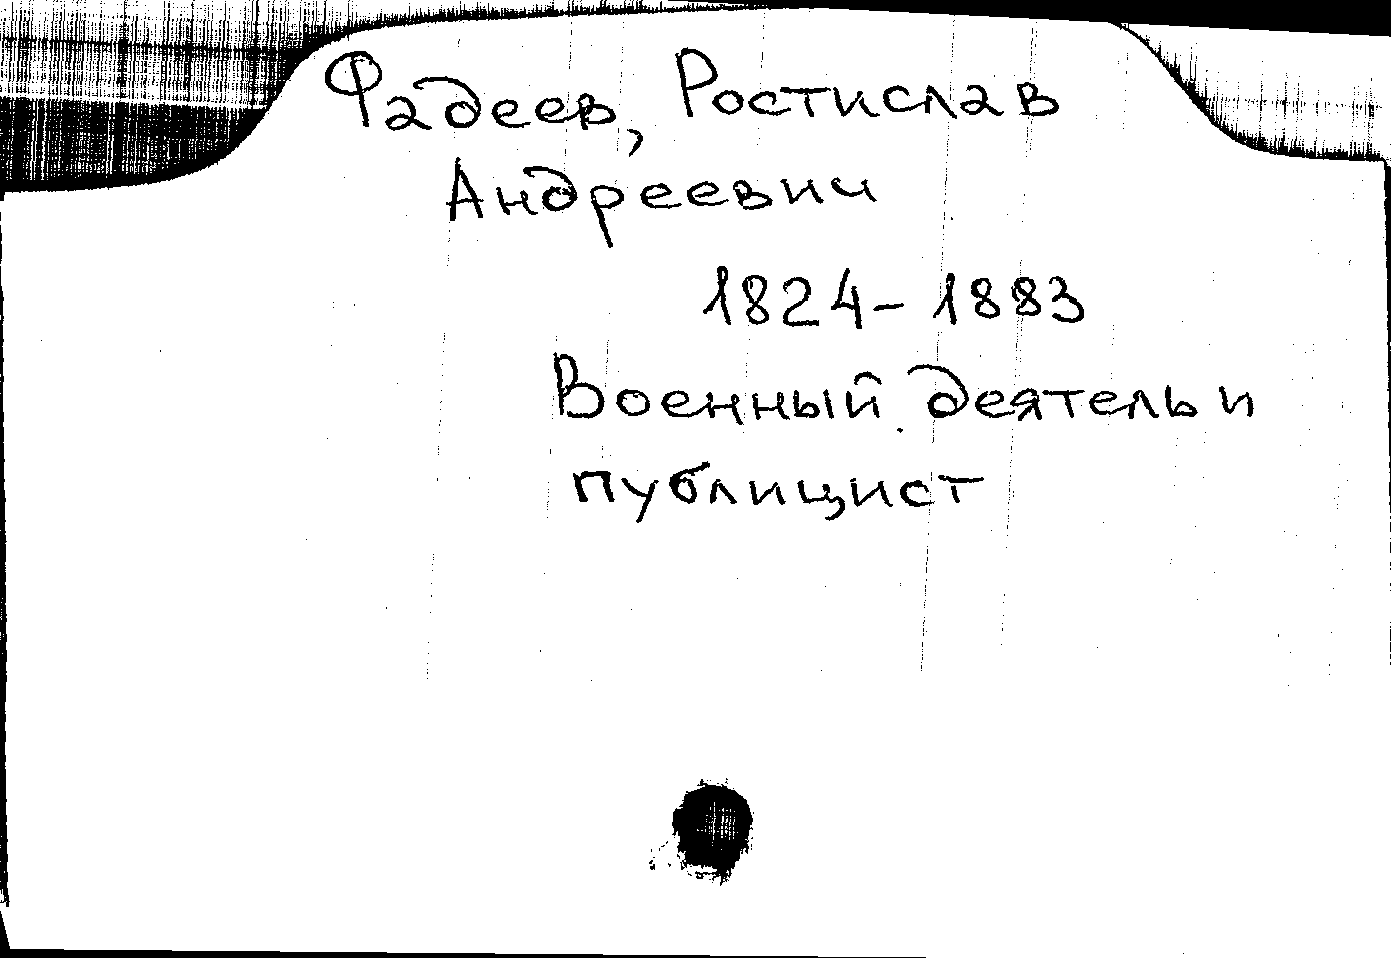 Фадеев, Ростислав
Андреевич
1824-1883
Военный деятель и
публицист